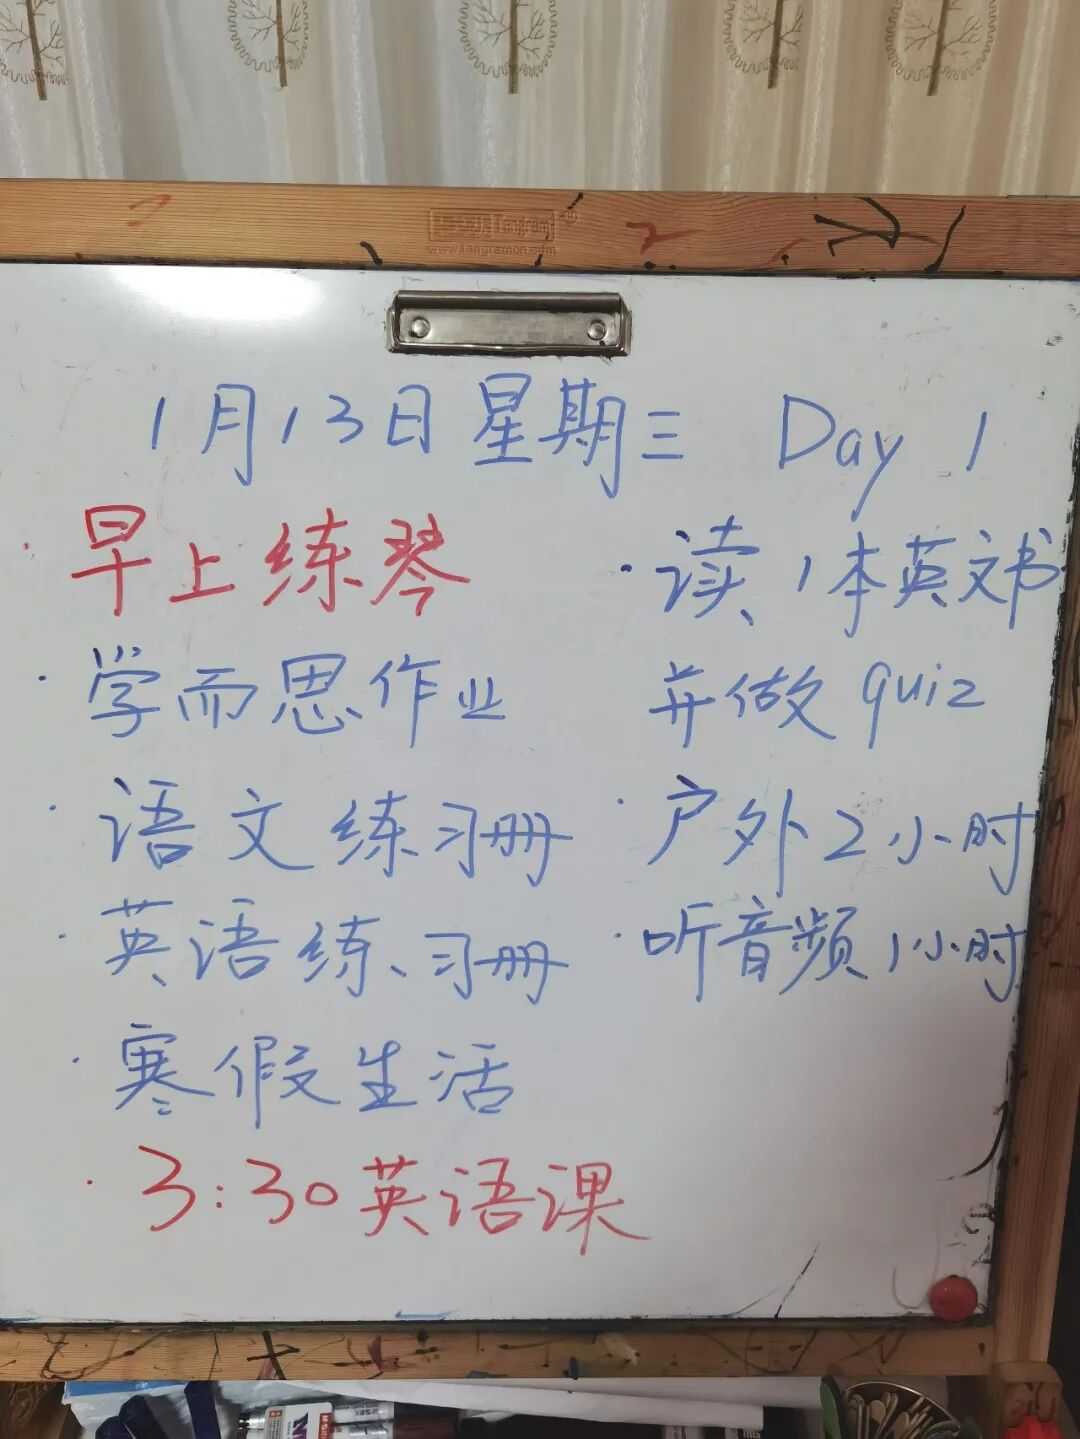 Tangram®
www.tangramon.com
1月13日星期三 Day 1
·早上练琴
·学而思作业
·语文练习册
·英语练习册
·寒假生活
·3:30英语课
·读1本英文书
并做quiz
·户外2小时
·听音频1小时